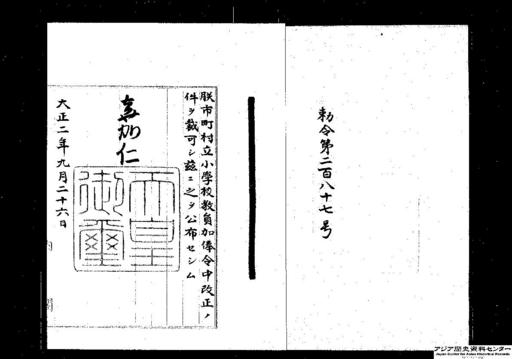 勅令第二百八十七号
朕市町村立小學校教員加俸令中改正ノ
件ヲ裁可シ茲ニ之ヲ公布セシム
嘉仁
天皇
御璽
大正二年九月二十六日
アジア歴史資料センター
Japan Center for Asian Historical Records